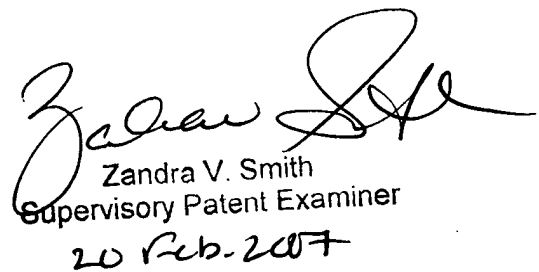 Zandra Smith
Zandra V. Smith
Supervisory Patent Examiner
20 Feb. 2007